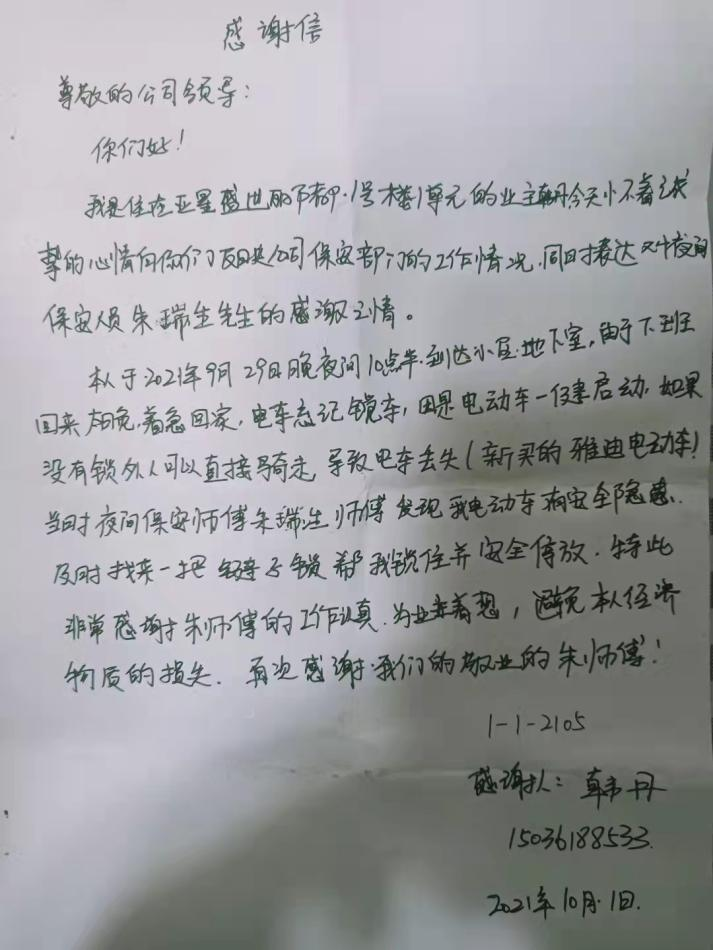 感谢信
尊敬的公司领导:
你们好!
我是住在亚星盛世丽都P·1号楼1单元的业主韩丹今天怀着诚
挚的心情向你们反映公司保安部门的工作情况,同时表达对夜间
保安人员朱瑞生先生的感谢之情。
本人于2021年9月29日晚夜间10点半到达小区地下室,由于下班
回来太晚,着急回家,电车忘记锁车,因是电动车一键启动,如果
没有锁外人可以直接骑走,导致电车丢失(新买的雅迪电动车)
当时夜间保安师傅朱瑞生师傅发现我电动车有安全隐患.
及时找来一把链子锁帮我锁住并安全停放.特此
非常感谢朱师傅的工作认真.为业主着想,避免本人经济
物质的损失.再次感谢我们的敬业的朱师傅!
1-1-2105
感谢人:韩丹
15036188533.
2021年10月1日.